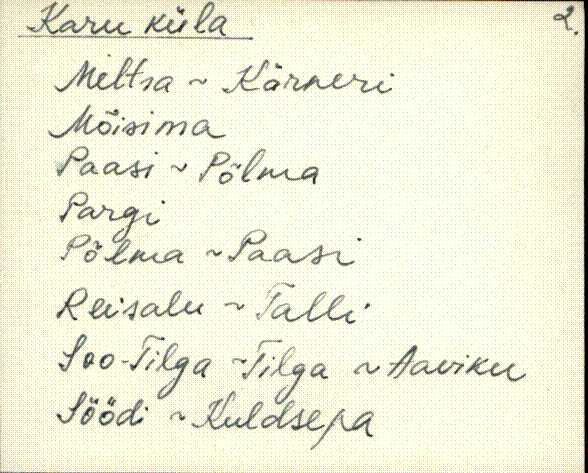 Karu küla 2.
Meltsa ~ Kärneri
Mõisima
Paasi ~ Põlma
Pargi
Põlma ~ Paasi
Reisalu ~ Talli
Soo-Tilga ~ Tilga ~ Aaviku
Söödi ~ Kuldsepa